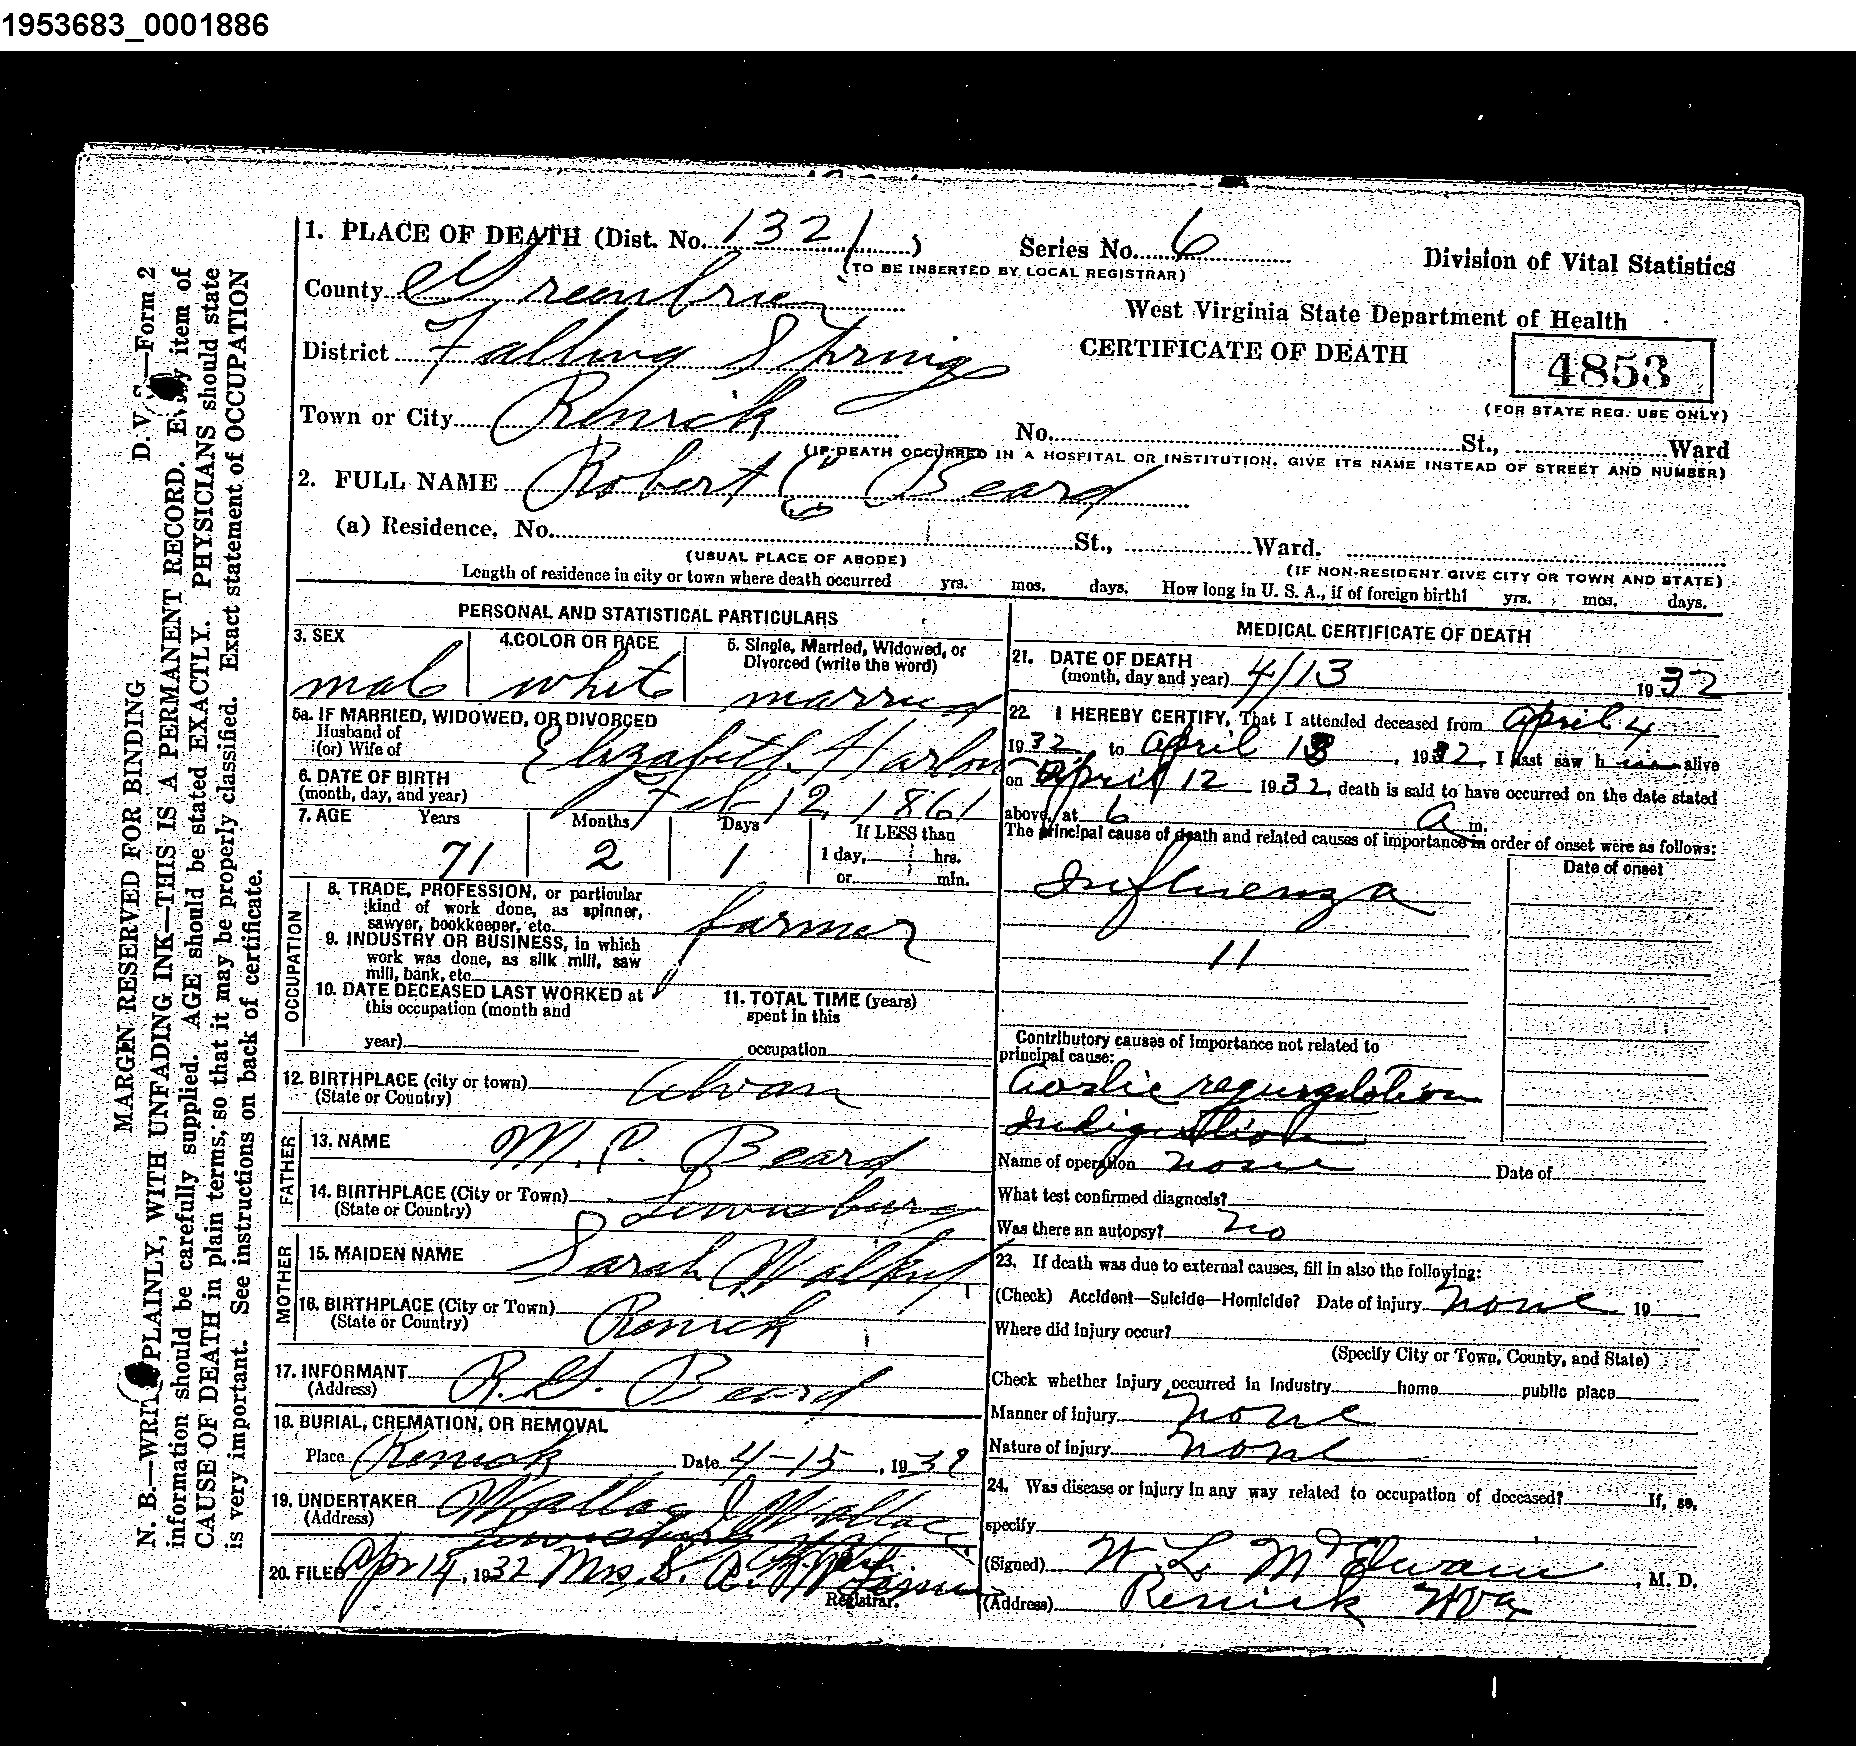 1953683_0001886
1. PLACE OF DEATH (Dist. No. 1321) Series No. 6
(TO BE INSERTED BY LOCAL REGISTRAR)
Division of Vital Statistics
County Greenbrier
West Virginia State Department of Health
District Falling Spring
CERTIFICATE OF DEATH
4853
(FOR STATE REG. USE ONLY)
Town or City Renick
No. St., Ward
(IF DEATH OCCURRED IN A HOSPITAL OR INSTITUTION, GIVE ITS NAME INSTEAD OF STREET AND NUMBER)
2. FULL NAME Robert C Beard
(a) Residence. No. St., Ward.
(USUAL PLACE OF ABODE) (IF NON-RESIDENT GIVE CITY OR TOWN AND STATE)
Length of residence in city or town where death occurred yrs. mos. days. How long in U. S. A., if of foreign birth? yrs. mos. days.
PERSONAL AND STATISTICAL PARTICULARS
3. SEX 4. COLOR OR RACE 5. Single, Married, Widowed, or
Divorced (write the word)
male white married
5a. IF MARRIED, WIDOWED, OR DIVORCED
Husband of
(or) Wife of Elizabeth Harlow
6. DATE OF BIRTH
(month, day, and year) Feb 12, 1861
7. AGE Years Months Days If LESS than
71 2 1 1 day, hrs.
or min.
OCCUPATION
8. TRADE, PROFESSION, or particular
kind of work done, as spinner,
sawyer, bookkeeper, etc. farmer
9. INDUSTRY OR BUSINESS, in which
work was done, as silk mill, saw
mill, bank, etc.
10. DATE DECEASED LAST WORKED at
this occupation (month and
year)
11. TOTAL TIME (years)
spent in this
occupation
12. BIRTHPLACE (city or town)
(State or Country)
FATHER
13. NAME M. P. Beard
14. BIRTHPLACE (City or Town) Lewisburg
(State or Country)
MOTHER
15. MAIDEN NAME Sarah
16. BIRTHPLACE (City or Town) Renick
(State or Country)
17. INFORMANT R. G. Beard
(Address)
18. BURIAL, CREMATION, OR REMOVAL
Place Renick Date 4-15, 1932
19. UNDERTAKER Wallace & Wallace
(Address) Lewisburg
20. FILED Apr 14, 1932 Mrs. S. A.
Registrar.
MEDICAL CERTIFICATE OF DEATH
21. DATE OF DEATH
(month, day and year) 4/13 1932
22. I HEREBY CERTIFY, That I attended deceased from April 4
1932, to April 13, 1932, I last saw him alive
on April 12 1932, death is said to have occurred on the date stated
above, at 6 a m.
The principal cause of death and related causes of importance in order of onset were as follows:
Date of onset
Influenza
11
Contributory causes of importance not related to
principal cause:
Aortic regurgitation
Indigestion
Name of operation none Date of
What test confirmed diagnosis?
Was there an autopsy? no
23. If death was due to external causes, fill in also the following:
(Check) Accident—Suicide—Homicide? Date of injury none 19
Where did injury occur?
(Specify City or Town, County, and State)
Check whether injury occurred in Industry home public place
Manner of injury none
Nature of injury none
24. Was disease or injury in any way related to occupation of deceased? If, so,
specify
(Signed) W. L. McElwain, M. D.
(Address) Renick W Va
MARGIN RESERVED FOR BINDING D. V. —Form 2
N. B.—WRITE PLAINLY, WITH UNFADING INK—THIS IS A PERMANENT RECORD. Every item of
information should be carefully supplied. AGE should be stated EXACTLY. PHYSICIANS should state
CAUSE OF DEATH in plain terms, so that it may be properly classified. Exact statement of OCCUPATION
is very important. See instructions on back of certificate.